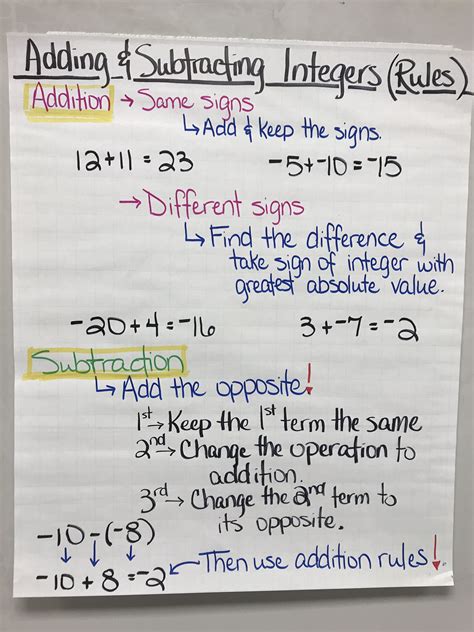 Adding & Subtracting Integers (Rules)
Addition → Same signs
↳ Add & keep the signs.
12+11=23 -5+-10=-15
→ Different signs
↳ Find the difference &
take sign of integer with
greatest absolute value.
-20+4=-16 3+-7=-2
Subtraction
↳ Add the opposite!
1st → Keep the 1st term the same
2nd → Change the operation to
addition.
3rd → Change the 2nd term to
its opposite.
-10-(-8)
↓ ↓ ↓
-10+8=-2 ← Then use addition rules!